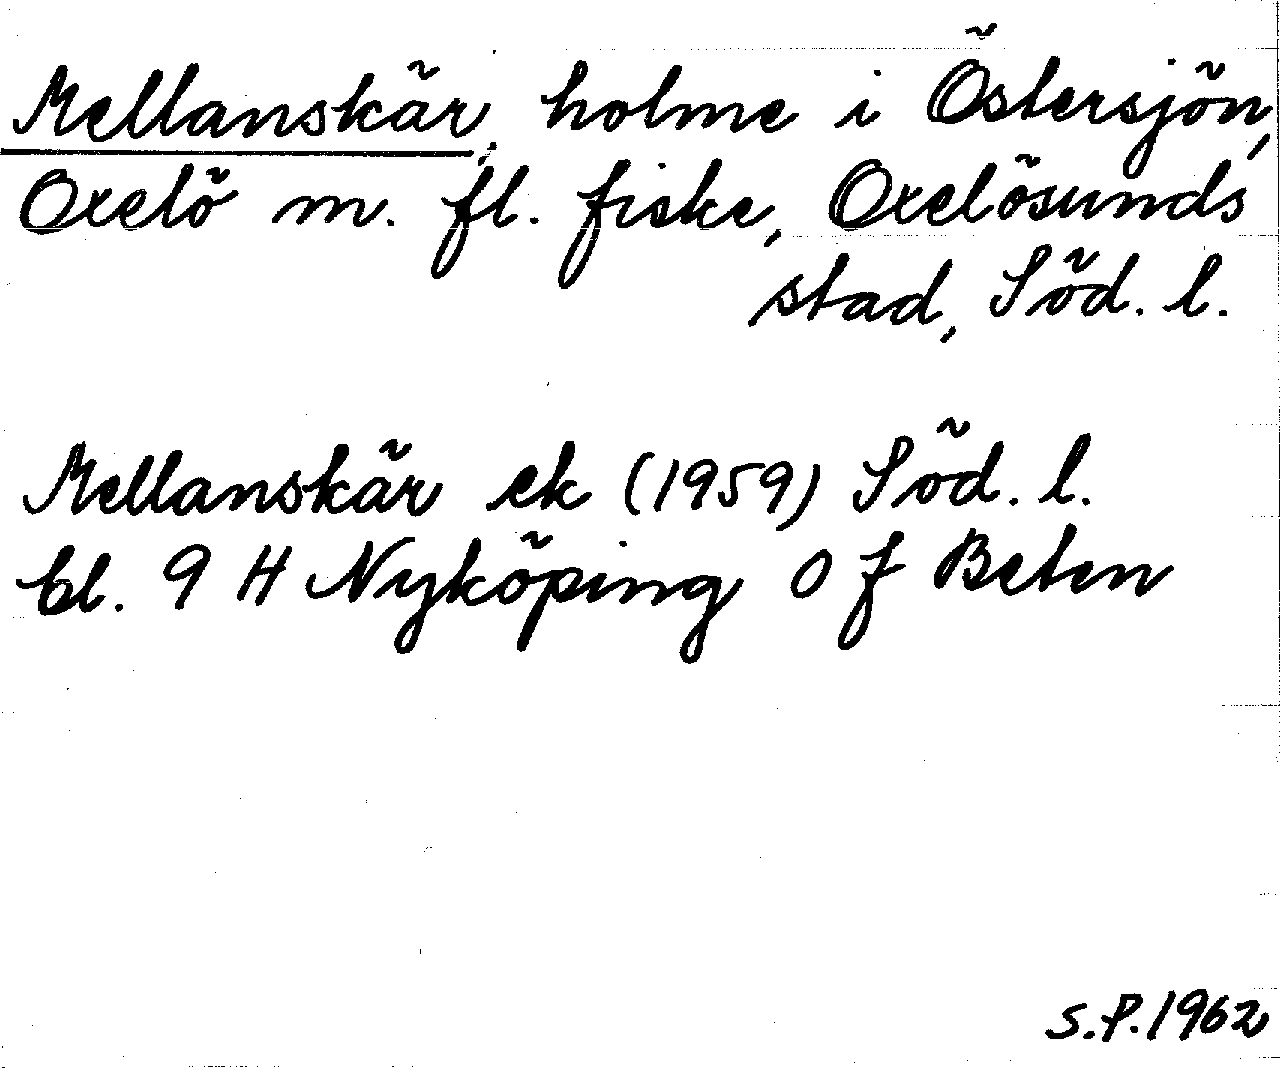 Mellanskär, holme i Östersjön,
Oxelö m. fl. fiske, Oxelösunds
stad, Söd. l.
Mellanskär ek (1959) Söd. l.
bl. 9 H Nyköping 0 f Beten
S.P. 1962